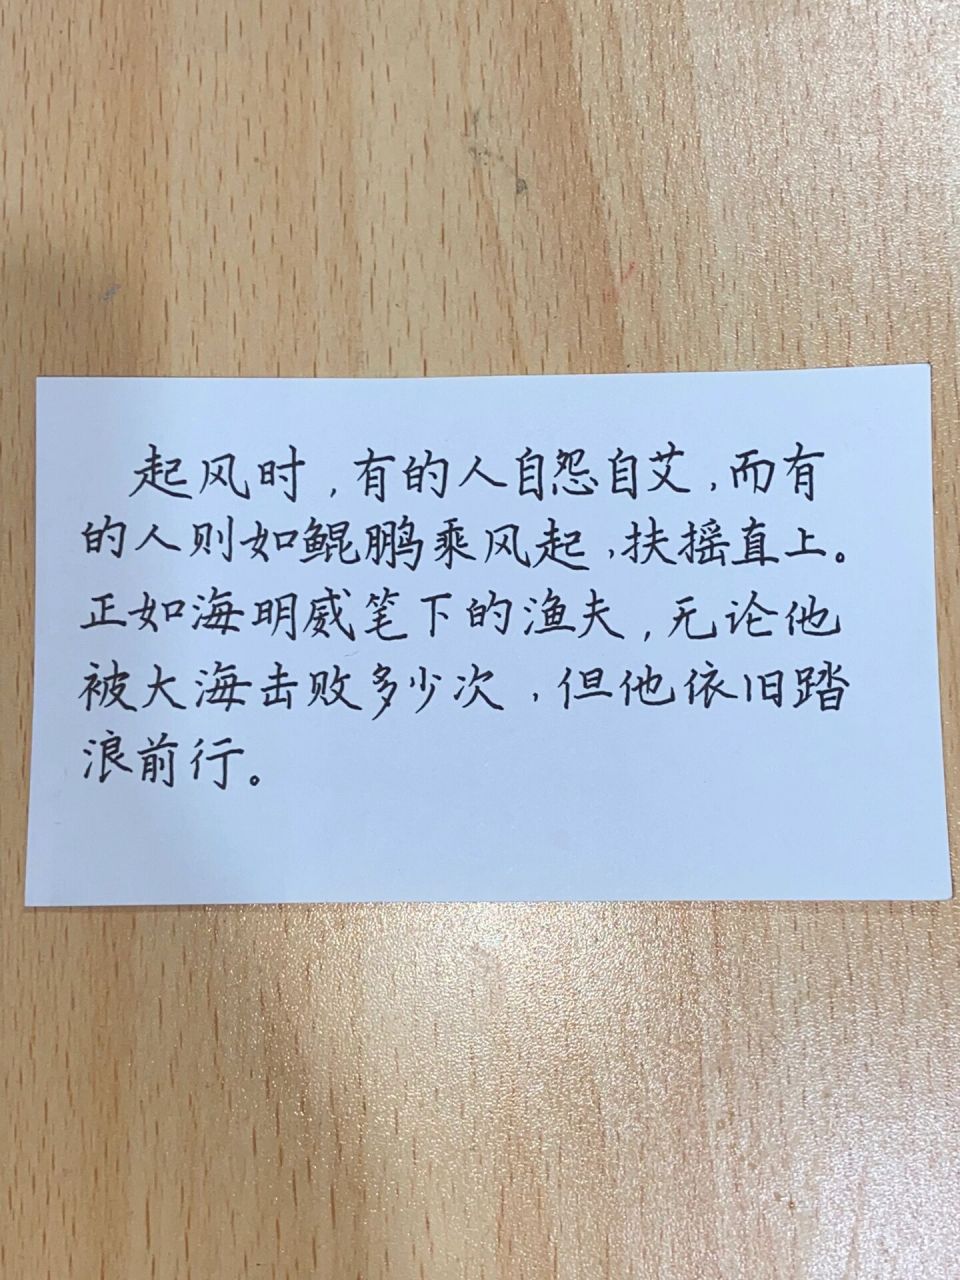 起风时，有的人自怨自艾，而有
的人则如鲲鹏乘风起，扶摇直上。
正如海明威笔下的渔夫，无论他
被大海击败多少次，但他依旧踏
浪前行。